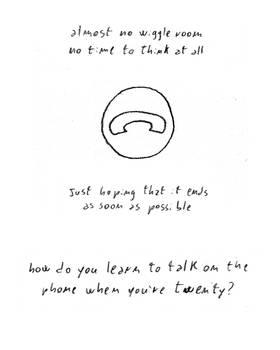 almost no wiggle room
no time to think at all
Just hoping that it ends
as soon as possible
how do you learn to talk on the
phone when you're twenty?